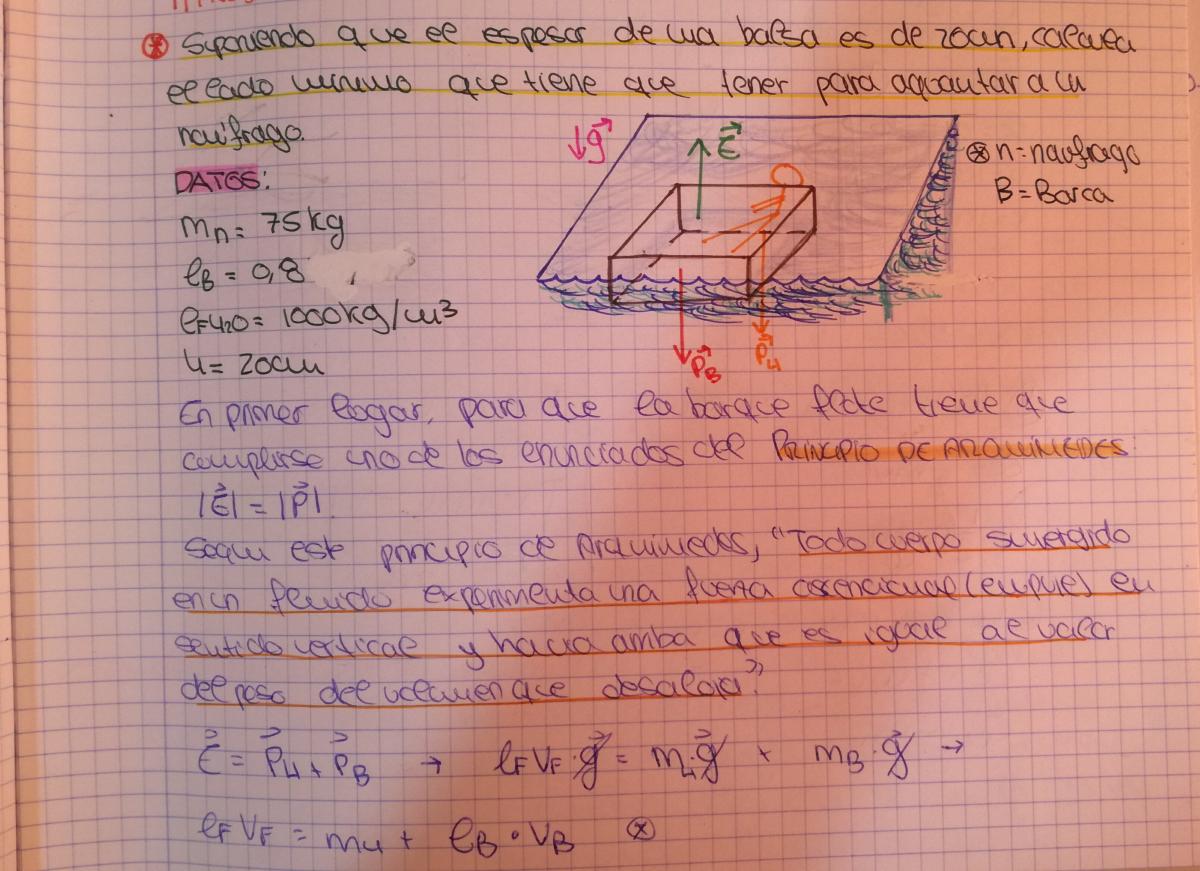 Suponiendo que el espesor de una balsa es de 20cm, calcula
el lado mínimo que tiene que tener para aguantar a un
naúfrago.
↓g⃗
E⃗
⊛ n = naufrago
B = Barca
DATOS:
mn = 75kg
ρB = 0,8
ρFH2O = 1000kg/m³
h = 20cm
P⃗B
P⃗n
En primer lugar, para que la barque flote tiene que
cumplirse uno de los enunciados del PRINCIPIO DE ARQUÍMEDES:
|E⃗| = |P⃗|.
Según este principio de Arquímedes, "Todo cuerpo sumergido
en un fluido experimenta una fuerza ascensional (empuje) en
sentido vertical y hacia arriba que es igual al valor
del peso del volumen que desaloja".
E⃗ = P⃗n + P⃗B → ρF VF · g⃗ = mn · g⃗ + mB · g⃗ →
ρF VF = mn + ρB · VB ⊛